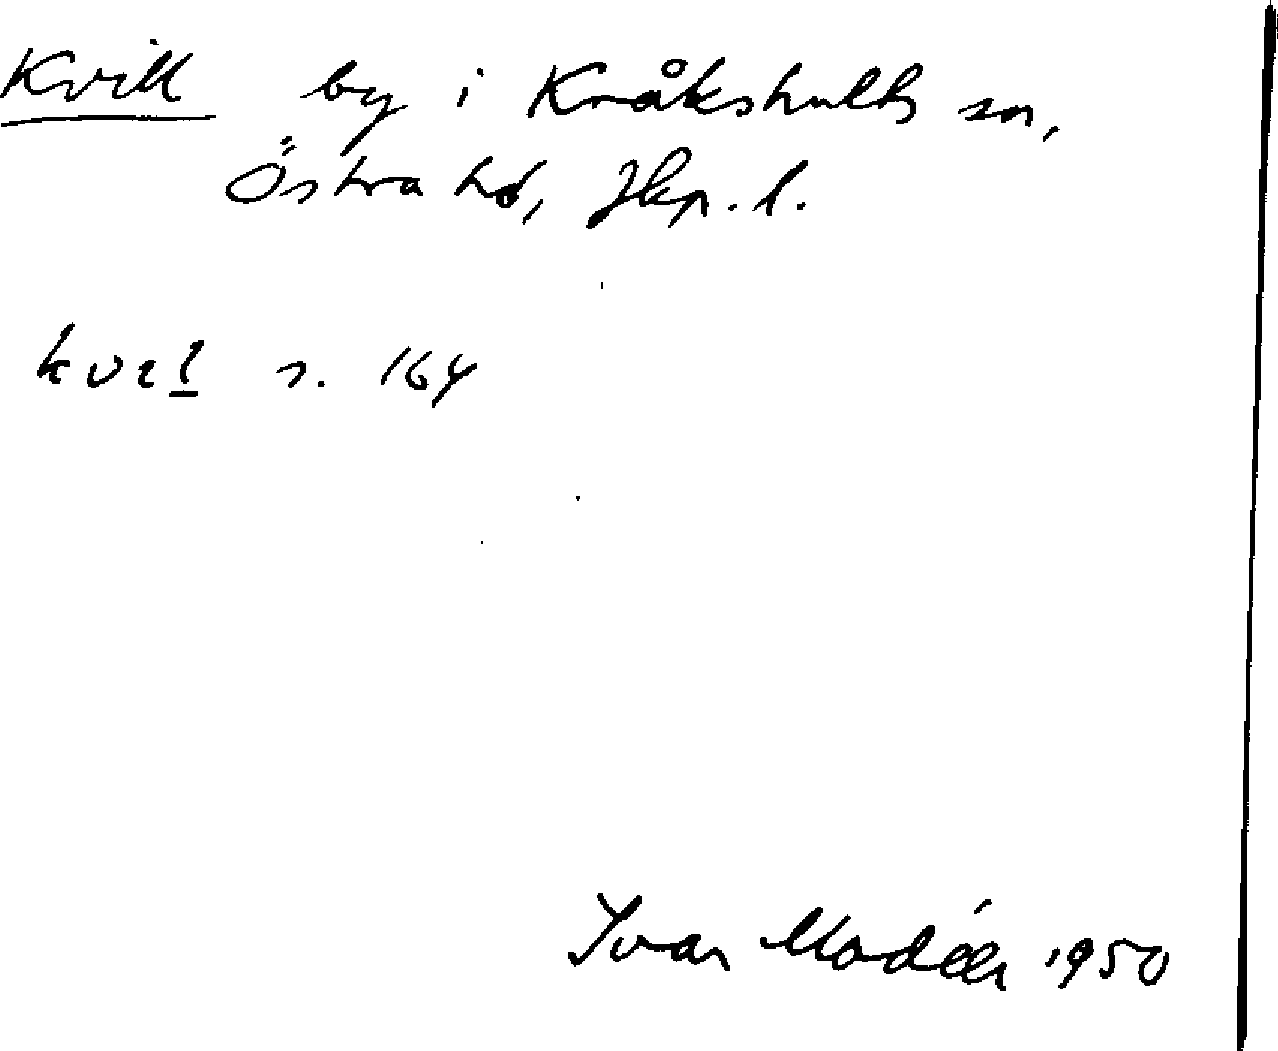 Kvill by i Kråkshults sn,
Östra hd, Jkp. l.
kvɩl s. 164
Ivar Modéer 1950